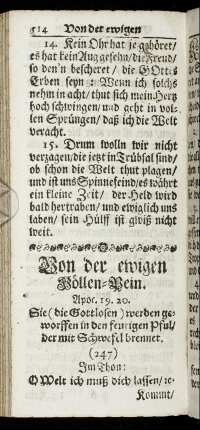 514 Von der ewigen
14. Kein Ohr hat je gehöret/
es hat kein Aug gesehn/ die Freud/
so den'n bescheret / die GOttes
Erben seyn: Wenn ich solchs
nehm in acht/ thut sich mein Hertz
hoch schwingen/ und geht in vol-
len Sprüngen/ daß ich die Welt
veracht.
15. Drum wolln wir nicht
verzagen/ die jetzt in Trübsal sind/
ob schon die Welt thut plagen/
und ist uns Spinnefeind/ es währt
ein kleine Zeit/ der Held wird
bald hertraben/ und ewiglich uns
laben/ sein Hülff ist gwiß nicht
weit.
Von der ewigen
Höllen-Pein.
Apoc. 19. 20.
Sie (die Gottlosen) werden ge-
worffen in den feurigen Pful/
der mit Schwefel brennet.
(247)
Im Thon:
O Welt ich muß dich lassen/ ꝛc.
Kommt/